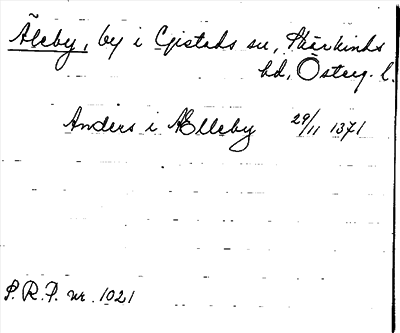 Älleby, by i Gistads sn, Skärkinds
hd, Österg. l.
Anders i Ælleby 29/11 1371
S.R.P. nr. 1021